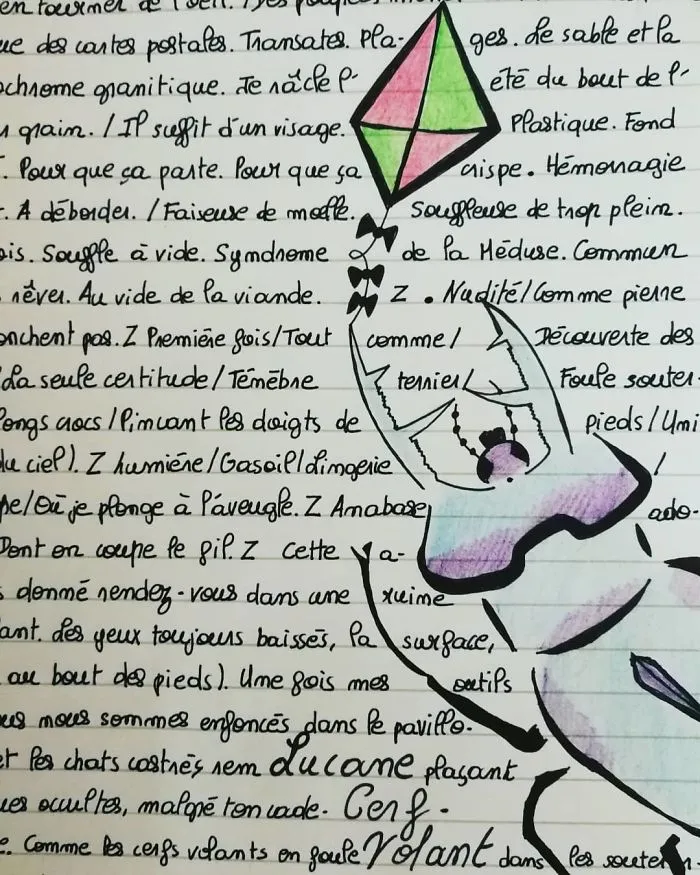 en tourner de l'œil.
ue des cartes postales. Transates. Pla- ges. Le sable et la
ochrome granitique. Je râcle l'- été du bout de l'-
grain. / Il suffit d'un visage. Plastique. Fond
. Pour que ça parte. Pour que ça crispe. Hémorragie
. A déborder. / Faiseuse de moelle. Souffleuse de trop plein.
ois. Souffle à vide. Symdrome de la Méduse. Commun
rêver. Au vide de la viande. Z . Nudité/Comme pierre
onchent pas. Z Première fois/Tout comme/ Découverte des
La seule certitude/Ténèbre terrier/ Foule souter-
longs crocs/Pinçant les doigts de pieds/Uni
du ciel). Z humière/Gasoil/Lingerie /
pe/Où je plonge à l'aveugle. Z Anabase ado-
Dont on coupe le fil. Z Cette a-
s donné rendez-vous dans une ruine
ant. Les yeux toujours baissés, la surface,
au bout des pieds). Une fois mes outils
us nous sommes enfoncés dans le pavillo-
et les chats castrés, rem Lucane plaçant
ues occultes, malgré ton cade- Cerf-
e. Comme les cerfs volants en foule Volant dans les souterrn-